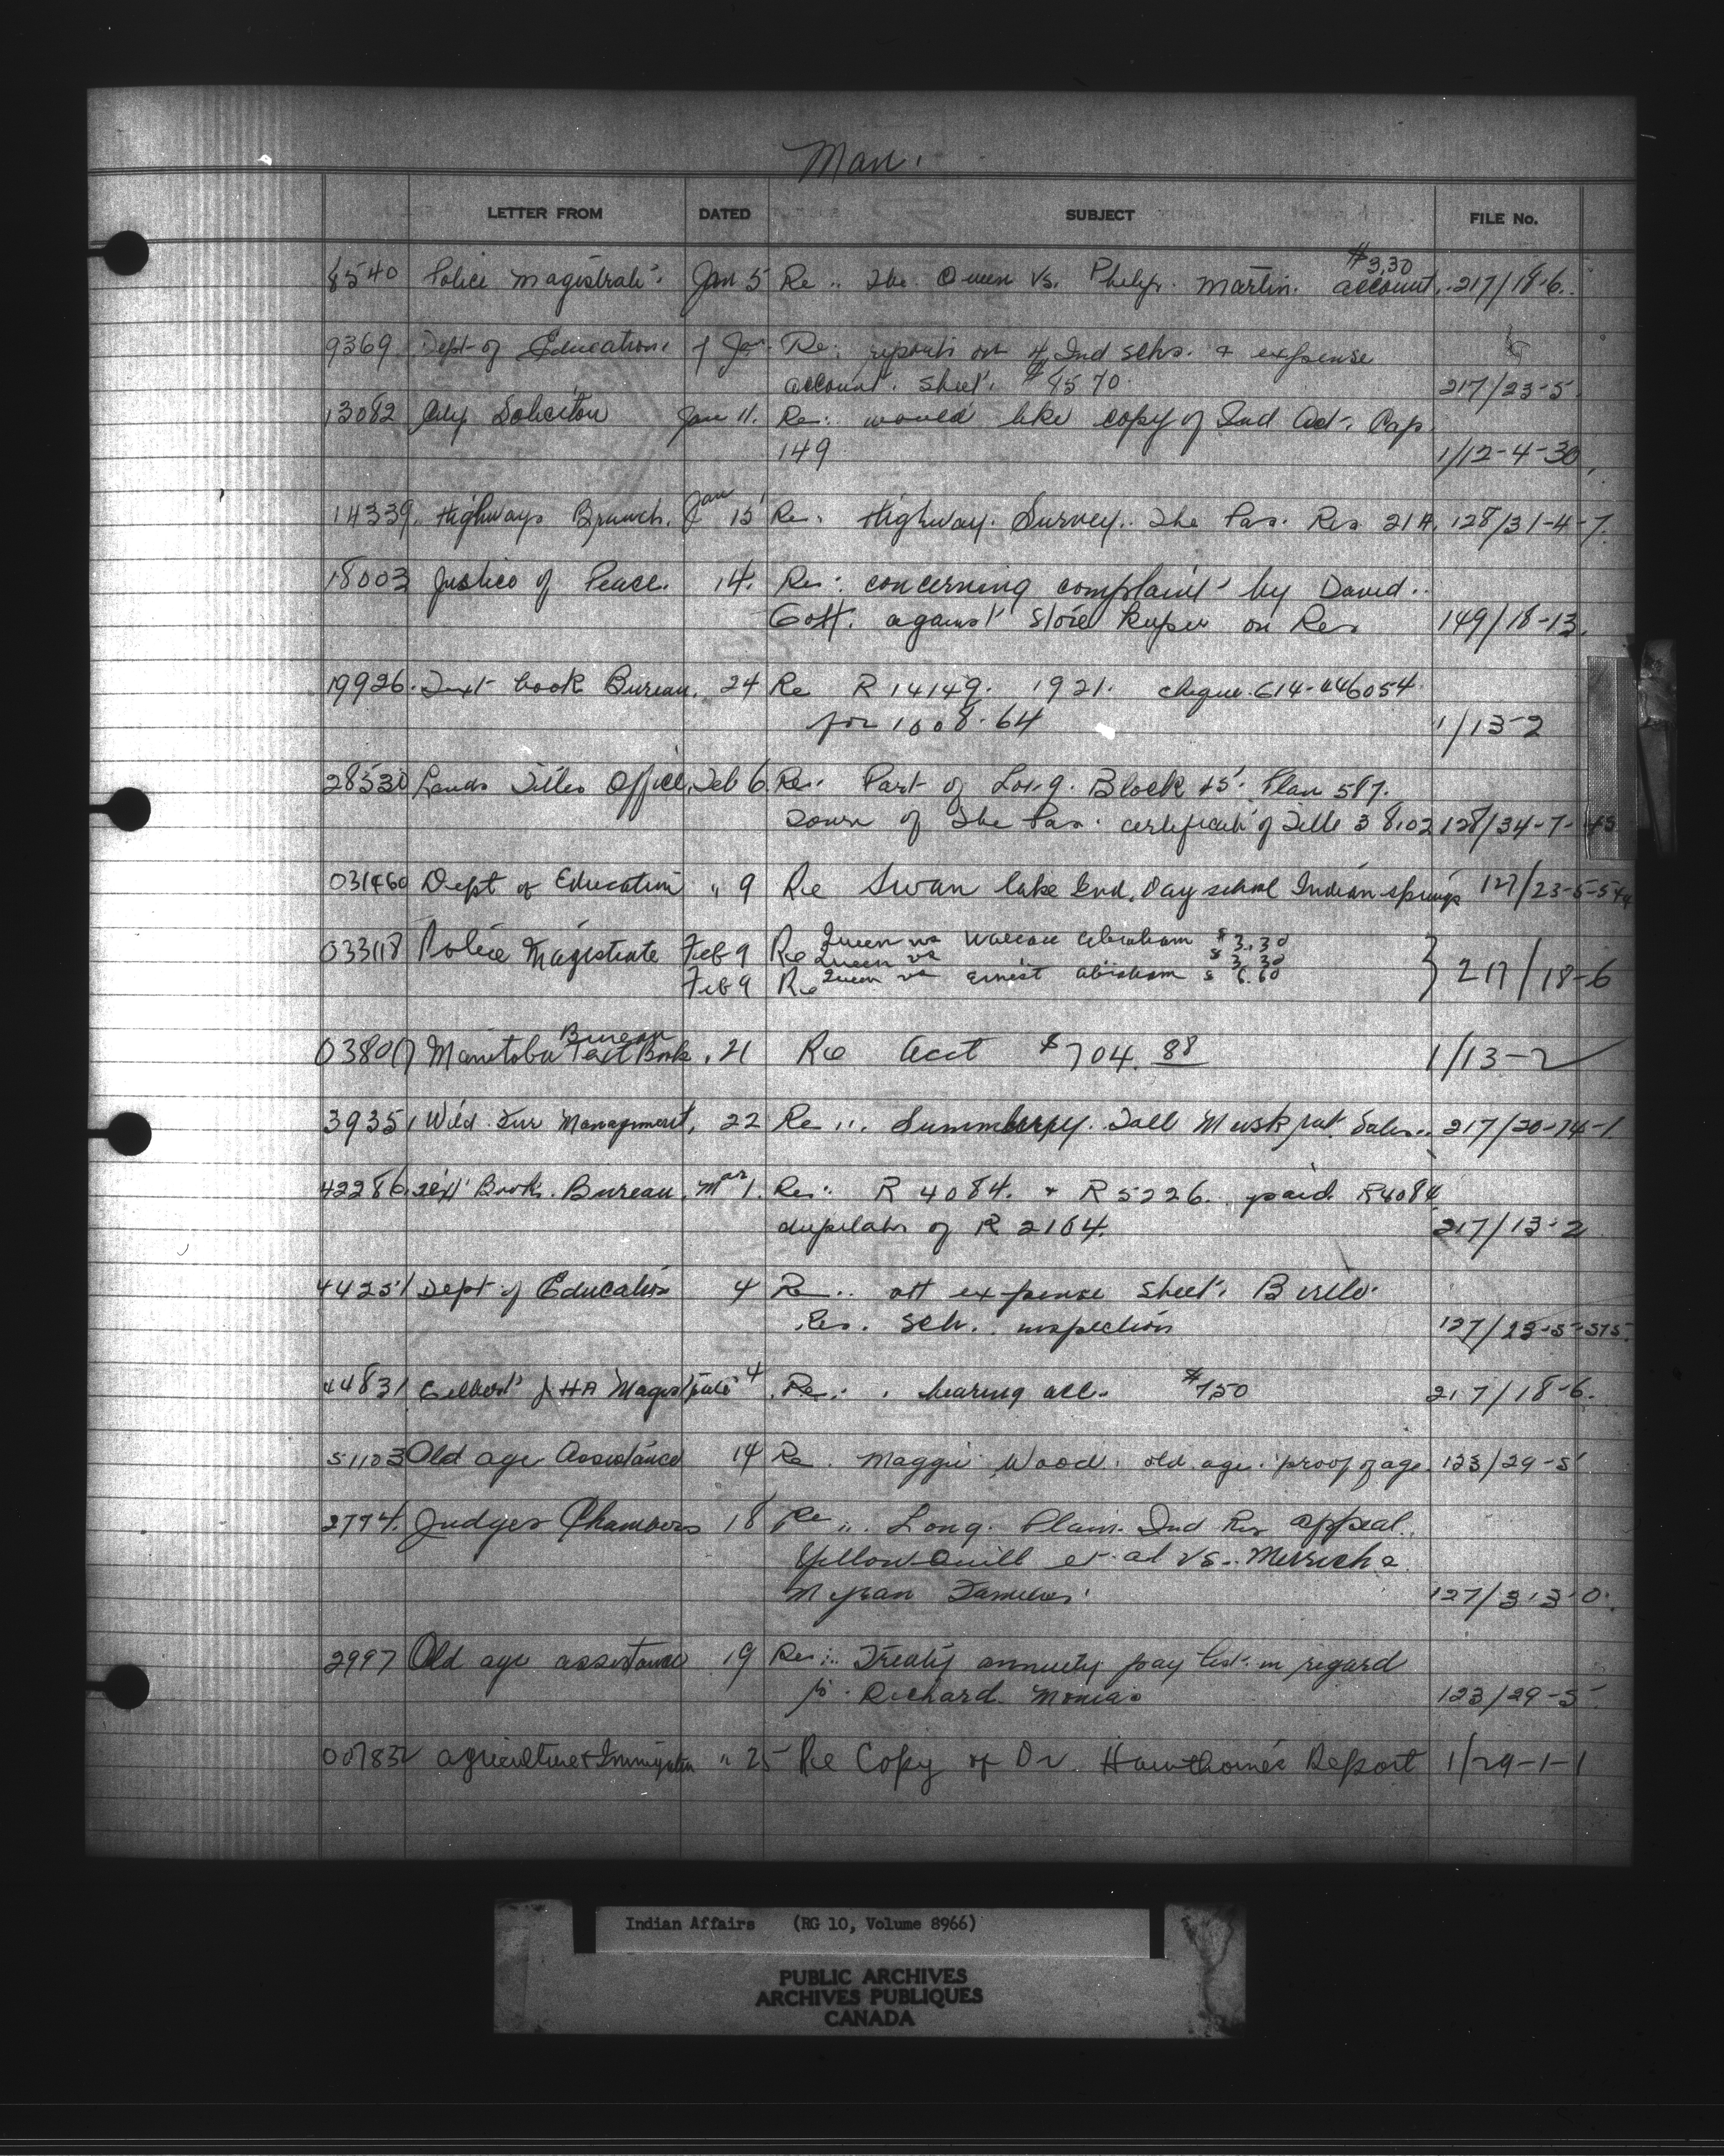 Man.
LETTER FROM DATED SUBJECT FILE No.
$3.30
8540 Police Magistrate. Jan 5 Re.. The Queen Vs. Philip. Martin. account. 217/18-6.
9369 Dept of Education. Jan. Re: reports on 4 Ind schs. & expense
account. sheet. $ 85 70. 217/23-5.
13082 City Solicitor Jan 11. Re: would like copy of Ind Act. Cap
149 1/12-4-30
Jan
14339. Highways Branch. 15 Re. Highway. Survey.. The Pas. Res 21A. 128/31-4-7.
18003 Justice of Peace. 14. Re: concerning complaint by David..
against store keeper on Res 149/18-13.
19926. Text book Bureau. 24 Re R 14149. 1921. cheque. 614-446054.
for 1008.64 1/13-2
28530 Lands Titles Office. Feb 6 Re: Part of Lot 9. Block 45. Plan 587.
Town of The Pas. certificate of Title 38102 128/34-7-
031460 Dept of Education " 9 Re Swan lake Ind. Day school Indian springs 127/23-5-
033118 Police Magistrate Feb 9 Re Queen vs Wallace Abraham $ 3.30
Queen vs $ 3.30
Feb 9 Re Queen vs Ernest Abraham $ 6.60 } 217/18-6
Bureau
038017 Manitoba Text Book " 21 Re Acct $704.88 1/13-2
39351 Wild Fur Management, 22 Re.. Summerberry. Fall Muskrat. Sales.. 217/20-14-1.
42286. Text Book. Bureau. Mar 1. Re: R 4084. & R 5226. paid. R4084
of R 2164. 217/13-2
44251 Dept of Education 4 Re.. att expense sheet. Birtle.
Res. Sch.. inspection 127/23-5-575.
44831 Gilbert J H A Magistrate 4 Re: . hearing acc. $7.50 217/18-6.
51103 Old age Assistance 14 Re. Maggie Wood. old. age. proof of age. 123/29-5
2774. Judges Chambers 18 Re.. Long. Plain. Ind Res appeal..
Yellow Quill et. al vs..
127/3-3-0.
2997 Old age assistance 19 Re:.. Treaty annuity pay list in regard
to. Richard. Monias 123/29-5
007832 agriculture & Immigration " 25 Re Copy of Dr. Hawthorne's Report 1/29-1-1
Indian Affairs (RG 10, Volume 8966)
PUBLIC ARCHIVES
ARCHIVES PUBLIQUES
CANADA